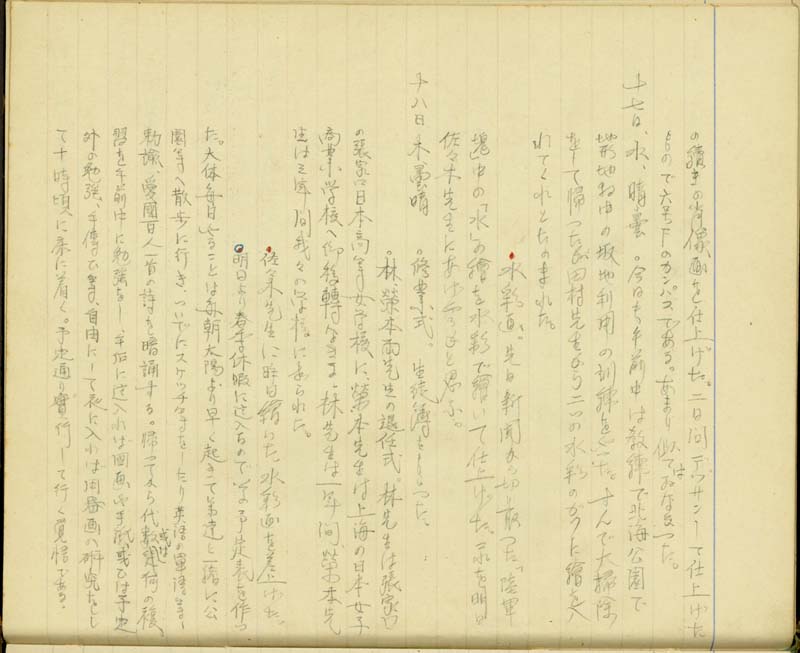 の續きの肖像画を仕上げた。二日間デッサンして仕上げた
もので六号Fのカンバスである。あまり似てはおなかった。
十七日、水、晴曇。今日も午前中は教練で北海公園で
地形地物の利用の訓練をした。すんで大掃除
をして帰った。田村先生から二つの水彩のガクに繪を入
れてくれとたのまれた。
水彩画。先日新聞から切り取った「陸軍
の「水」の繪を水彩で繪いて仕上げた。之を明日
佐々木先生にあげようと思ふ。
十八日 木 曇晴 。修業式。生徒簿をもらった。
。林、榮本両先生の退任式。林先生は張家口
の張家口日本高等女学校に、榮本先生は上海の日本女子
商業学校へ御移轉なさる。林先生は一年間、榮本先
生は三年間我々の学校に居られた。
佐々木先生に昨日繪いた水彩画を差上げた。
明日より春季休暇に這入るので予定表を作っ
た。大体毎日することは毎朝太陽より早く起きて弟達と一緒に公
園等へ散歩に行き、ついでにスケッチ等をしたり英語の單語、
勅諭、愛國百人一首の詩を暗誦する。帰ってから代数或は幾何の復
習を午前中に勉強をし、午后に這入れば図画や手紙或ひは予定
外の勉強、手傳ひ等、自由にして夜に入れば図画の研究をし
て十時頃に床に着く。予定通り實行して行く覚悟である。